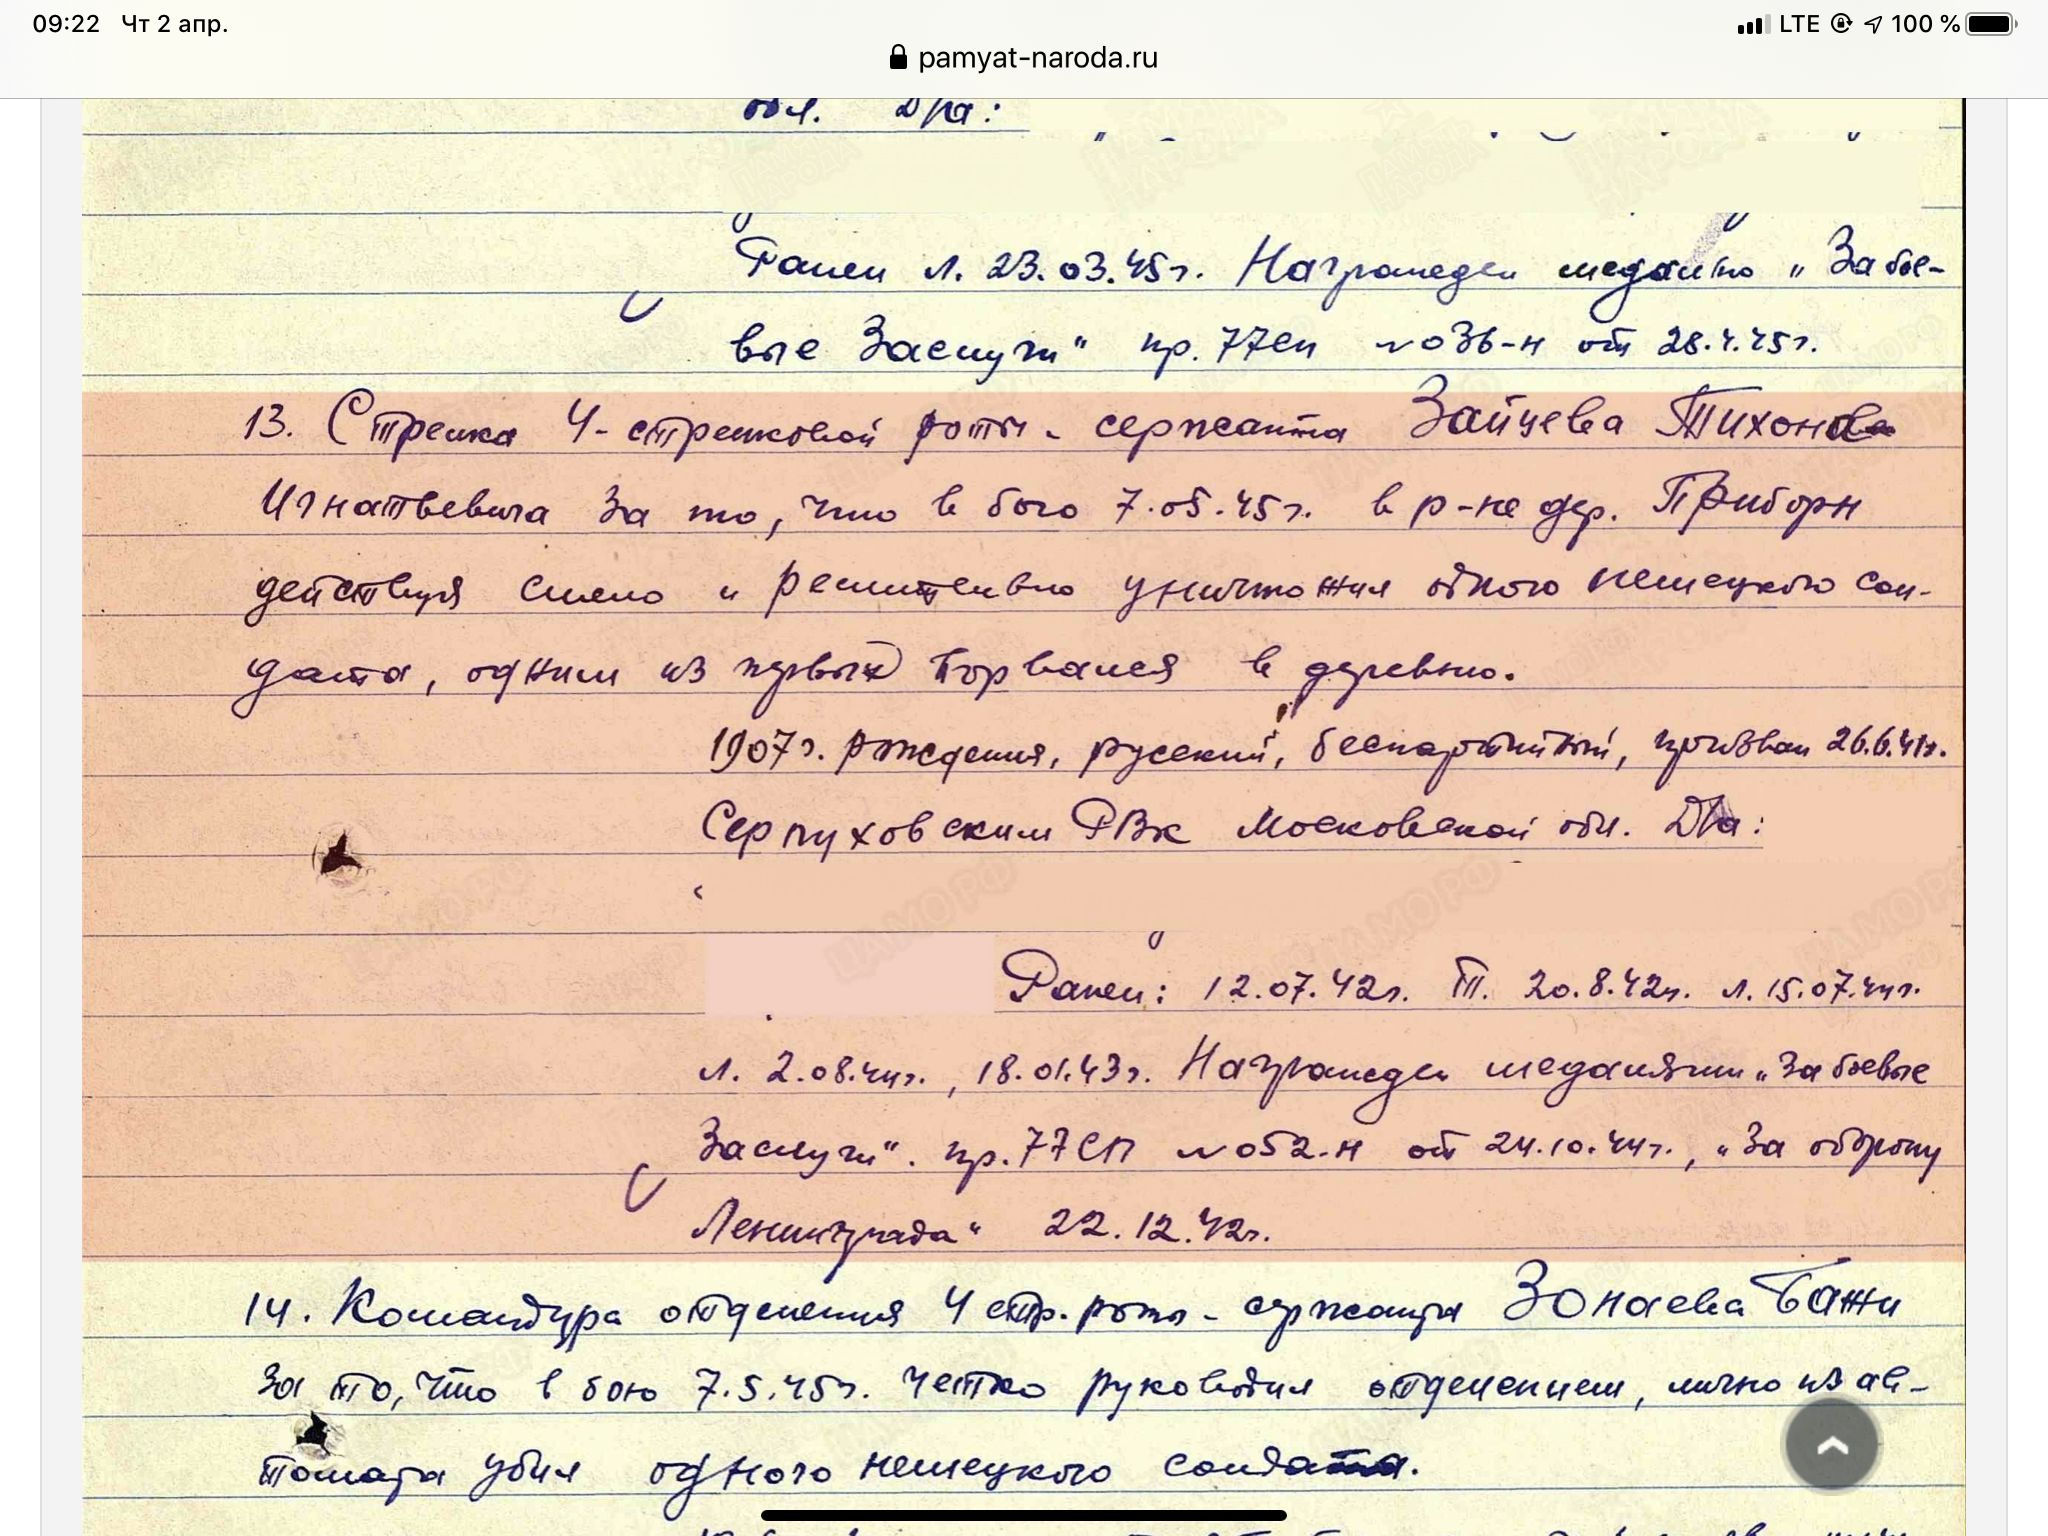 09:22 Чт 2 апр. LTE 100 %
pamyat-naroda.ru
обл. Д/а:
Ранен л. 23.03.45г. Награжден медалью „За бое-
вые Заслуги" пр. 77сп №036-н от 28.4.45г.
13. Стрелка 4-стрелковой роты - сержанта Зайцева Тихона
Игнатьевича За то, что в бою 7.05.45г. в р-не дер. Приборн
действуя смело и решительно уничтожил одного немецкого сол-
дата, одним из первых ворвался в деревню.
1907г. рождения, русский, беспартийный, призван 26.6.41г.
Серпуховским РВК Московской обл. Д/а:
Ранен: 12.07.42г. Т. 20.8.42г. л. 15.07.44г.
л. 2.08.44г., 18.01.43г. Награжден медалями „За боевые
Заслуги". пр. 77СП №052-н от 24.10.44г., „За оборону
Ленинграда" 22.12.42г.
14. Командира отделения 4 стр. роты - сержанта Зонаева Бажи
За то, что в бою 7.5.45г. четко руководил отделением, лично из ав-
томата убил одного немецкого солдата.